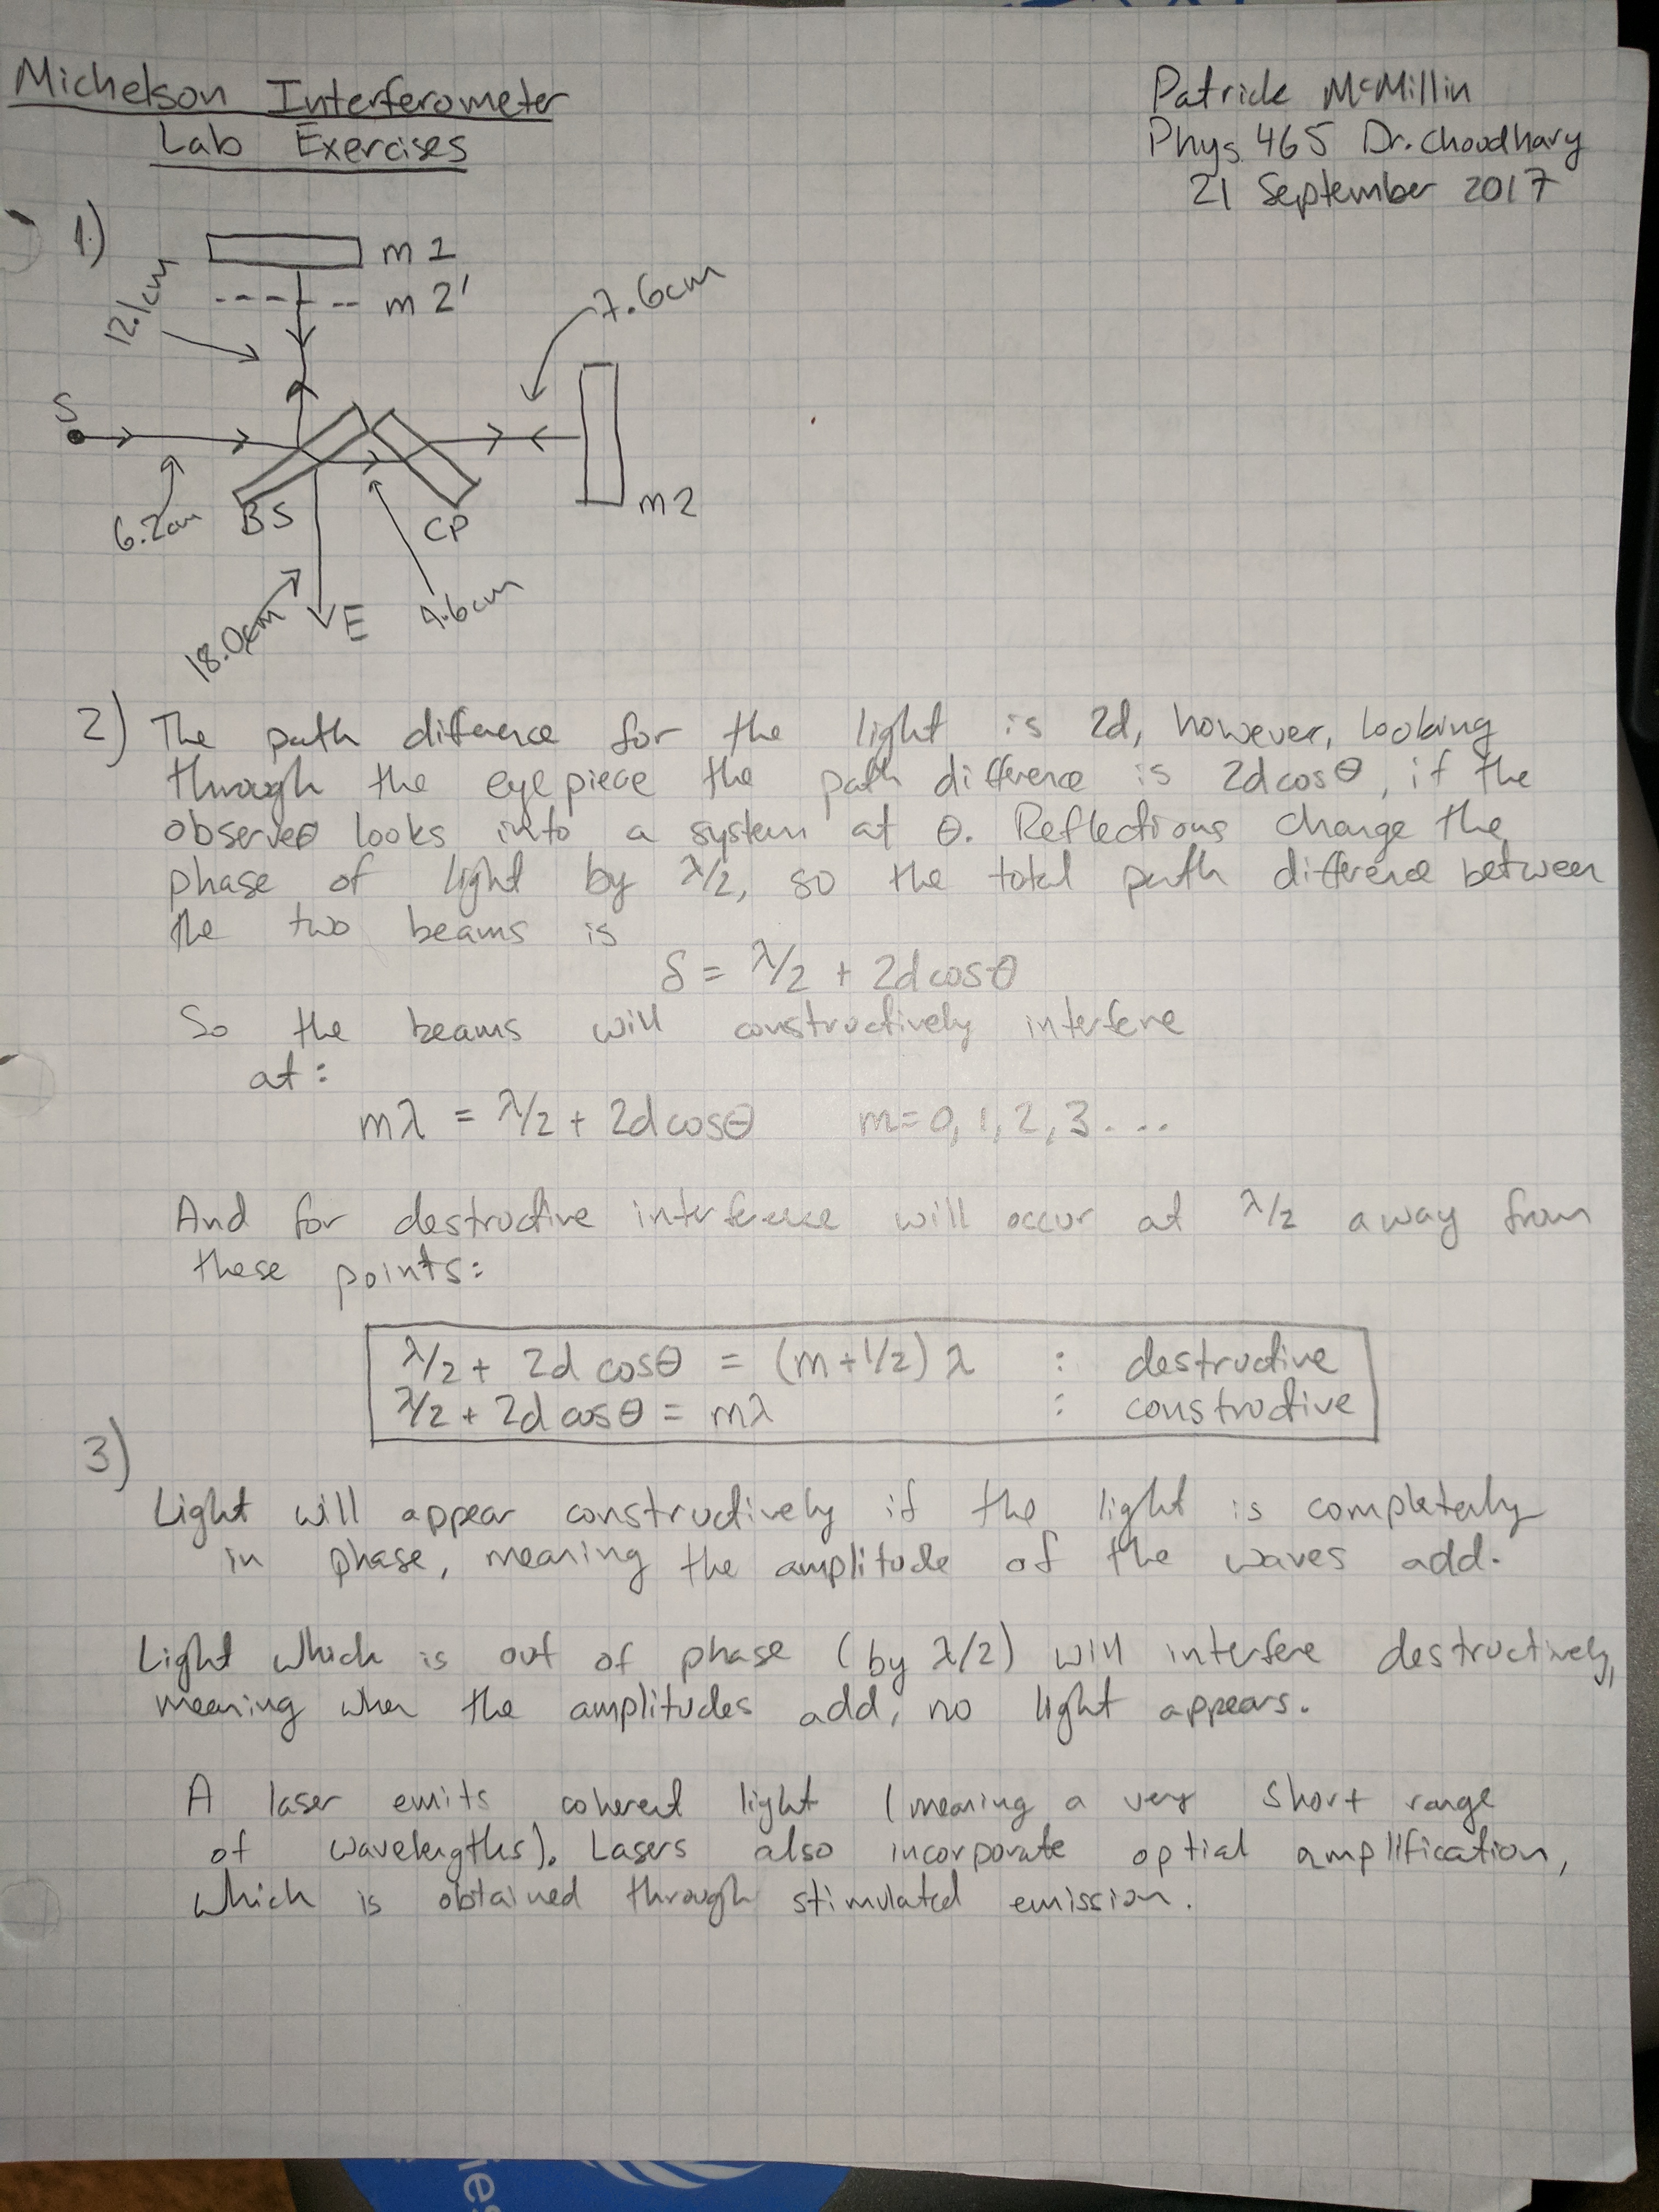 Michelson Interferometer
Lab Exercises
Patrick McMillin
Phys 465 Dr. Choudhary
21 September 2017
1)
m 1
m 2'
12.1cm
7.6cm
S
6.2cm
BS
CP
m2
18.0cm
E
4.6cm
2) The path diference for the light is 2d, however, looking
through the eyepiece the path difference is 2d cosθ, if the
observer looks into a system at θ. Reflections change the
phase of light by λ/2, so the total path difference between
the two beams is
δ = λ/2 + 2d cosθ
So the beams will constructively interfere
at:
mλ = λ/2 + 2d cosθ m=0, 1, 2, 3...
And for destructive interference will occur at λ/2 away from
these points:
λ/2 + 2d cosθ = (m+1/2) λ : destructive
λ/2 + 2d cosθ = mλ : constructive
3)
Light will appear constructively if the light is completely
in phase, meaning the amplitude of the waves add.
Light which is out of phase (by λ/2) will interfere destructively,
meaning when the amplitudes add, no light appears.
A laser emits coherent light (meaning a very short range
of wavelengths). Lasers also incorporate optial amplification,
which is obtained through stimulated emission.